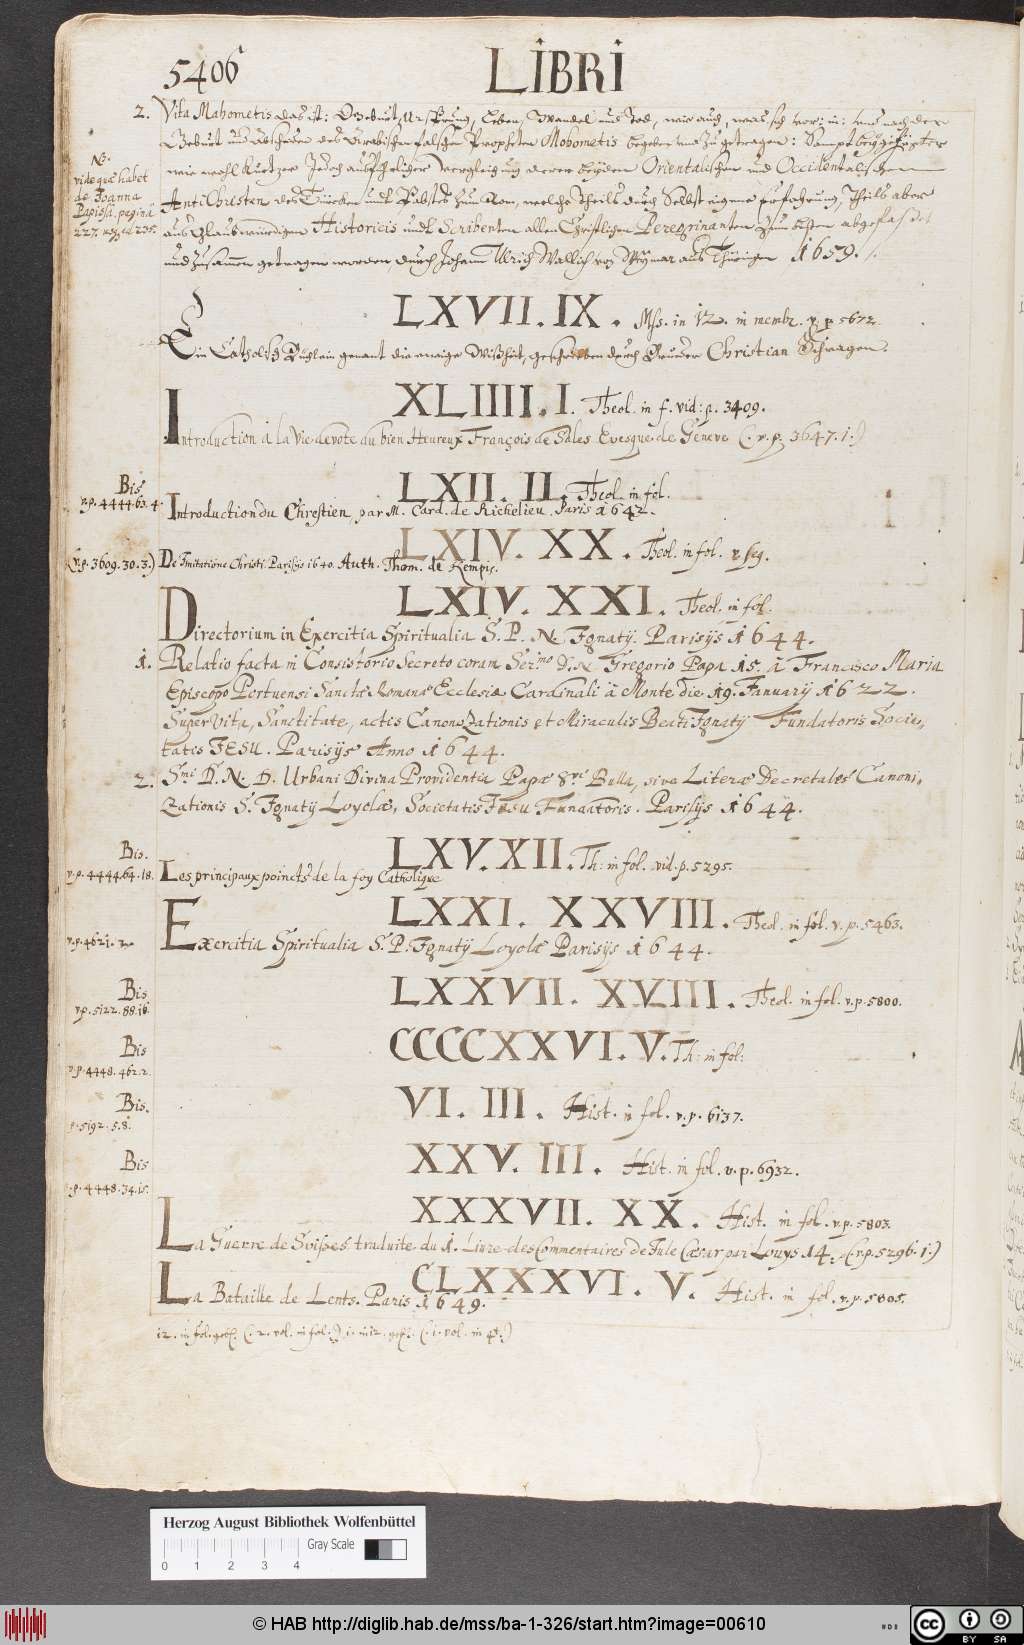 5406
LIBRI
2. Vita Mahometis das ist: Geburt, Ursprung, Leben, Wandel und Tod, wie auch, was sich vor: in: und nach der
Geburt und Abscheiden des Arabischen falschen Propheten Mohometis begeben und zu getragen: Sampt beygefügter
wie wohl kurtzer Jedoch ausführlicher Vergleichung derer beyden Orientalischen und Occidentalischen
AntiChristen des Türcken und Pabsts zu Rom, welche theils durch selbst eigene erfahrung, theils aber
aus glaubwürdigen Historicis und Scribenten allen Christlichen Peregrinanten zum besten abgefasset
und zusamen getragen worden, durch Johann Ulrich Wallich von Weymar aus Thüringen 1659.
NB.
vide quæ habet
de Joanna
Papissa pagina
227. usq; ad 235.
LXVII. IX. Mss. in 12. in membr. v. p. 5672.
Ein Catholisch Büchlein genant die ewige Wißheit, geschrieben durch Bruder Christian Schragen.
XLIIII. I. Theol. in f. vid: p. 3409.
Introduction à la Vie devote du bien Heureux François de Sales Evesque de Geneve (. v. p. 3647. 1.)
Bis
v.p. 4444. 63. 4.
LXII. II. Theol. in fol.
Introduction du Chrestien, par M. Card. de Richelieu. Paris 1642.
LXIV. XX. Theol. in fol.
(v.p. 3609. 30. 3.) De Imitatione Christi. Parisijs 1640. Auth. Thom. de Kempis.
LXIV. XXI. Theol. in fol.
Directorium in Exercitia Spiritualia S. P. N. Ignatij. Parisijs 1644.
1. Relatio facta in Consistorio Secreto coram Ser.mo D. N. Gregorio Papa 15. à Francisco Maria
Episcopo Portuensi Sanctæ Romanæ Ecclesiæ Cardinali à Monte die 19. Januarij 1622.
Super vita, Sanctitate, actis Canonizationis et Miraculis Beati Ignatij Fundatoris Socie,
tatis JESU. Parisijs Anno 1644.
2. Smi D. N. D. Urbani Divina Providentia Papæ 8.vi Bulla, sive Literæ Decretales Canoni,
zationis S. Ignatij Loyolæ, Societatis Jesu Fundatoris. Parisijs 1644.
Bis.
v.p. 4444. 64. 18.
LXV. XII. Th: in fol. vid. p. 5295.
Les principaux poincts de la foy Catholique
LXXI. XXVIII. Theol. in fol. v. p. 5463.
v.p. 4621.
Exercitia Spiritualia S. P. Ignatij Loyolæ Parisijs 1644.
Bis
v.p. 5122. 88. 16.
LXXVII. XVIII. Theol. in fol. v. p. 5800.
Bis
v.p. 4448. 462. 2.
CCCCXXVI. V. Th: in fol:
Bis.
p. 5192. 5. 8.
VI. III. Hist. in fol. v. p. 6137.
Bis
p. 4448. 34. 15.
XXV. III. Hist. in fol. v. p. 6932.
XXXVII. XX. Hist. in fol. v. p. 5803.
La Guerre de Svisses traduite du 1. Livre des Commentaires de Jule Cæsar par Louys 14. (. v. p. 5296. 1.)
CLXXXVI. V. Hist. in fol. v. p. 5805.
La Bataille de Lents. Paris 1649.
12. in fol. (. 2. vol. in fol.) (. 1. vol. in 4t.)
Herzog August Bibliothek Wolfenbüttel
Gray Scale
0 1 2 3 4
© HAB http://diglib.hab.de/mss/ba-1-326/start.htm?image=00610
cc BY SA